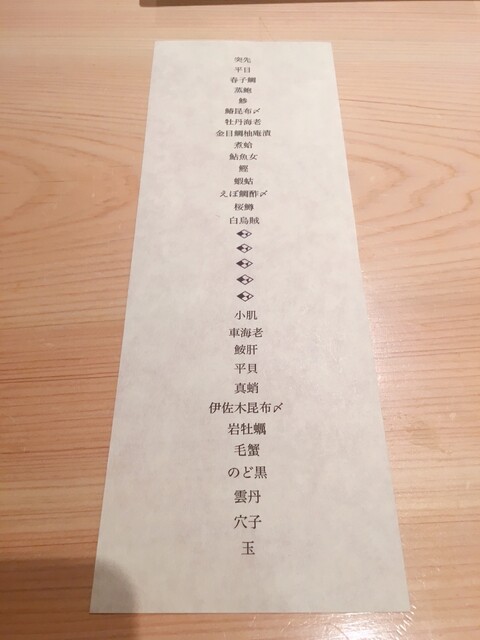 突先
平目
春子鯛
蒸鮑
鯵
鰆昆布〆
牡丹海老
金目鯛柚庵漬
煮蛤
鮎魚女
鰹
蝦蛄
えぼ鯛酢〆
桜鱒
白烏賊
小肌
車海老
鮟肝
平貝
真蛸
伊佐木昆布〆
岩牡蠣
毛蟹
のど黒
雲丹
穴子
玉